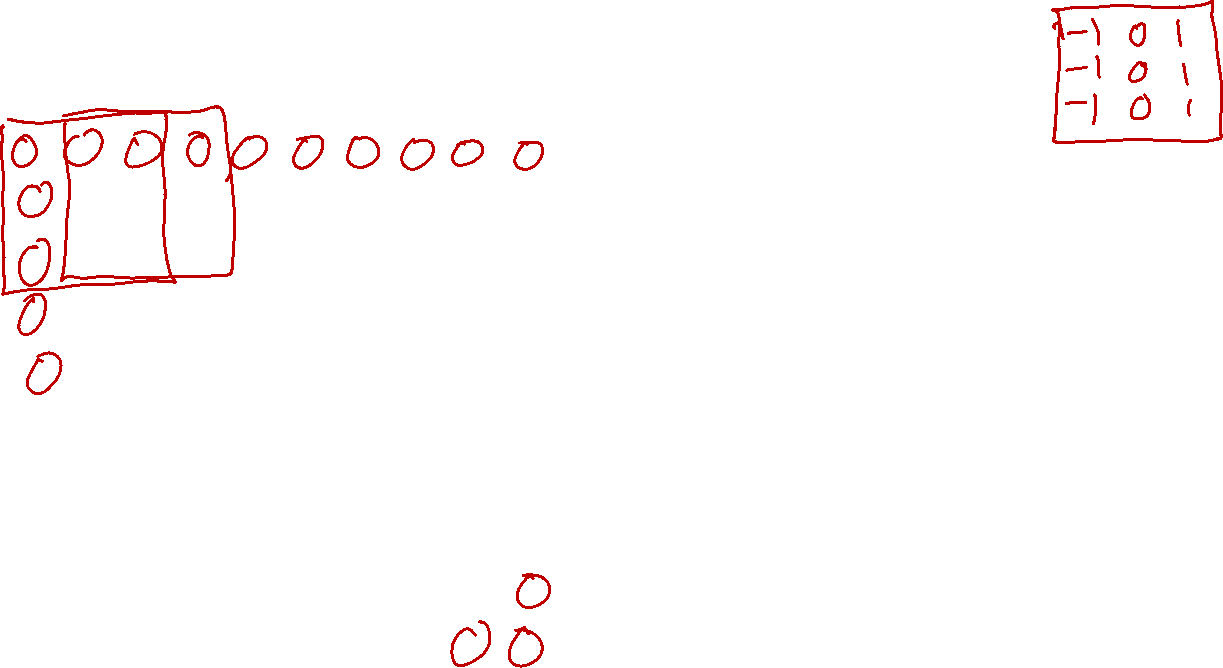 -1 0 1
-1 0 1
-1 0 1
0 0 0 0 0 0 0 0 0 0
0
0
0
0
0
0 0